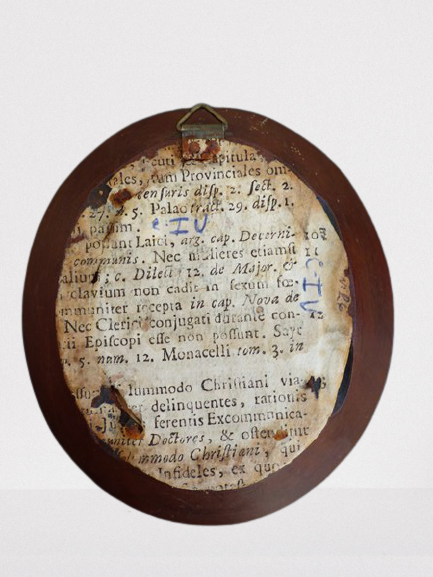 cuti & Capitula
ales, tum Provinciales om-
censuris disp. 2. sect. 2.
27. n. 5. Palao tract. 29. disp. 1.
passim.
possunt Laici, arg. cap. Decerni-
communis. Nec mulieres etiamsi
c. Dilecta 12. de Major. &
clavium non cadit in sexum fœ-
mmuniter recepta in cap. Nova de
Nec Clerici conjugati durante con-
ii Episcopi esse non possunt. Sayr
5. num. 12. Monacelli tom. 3. in
summodo Christiani via-
delinquentes, rationis
ferentis Excommunica-
muniter Doctores, & ostenditur
summodo Christiani, qui
Infideles, ex quo
c IV
c IV